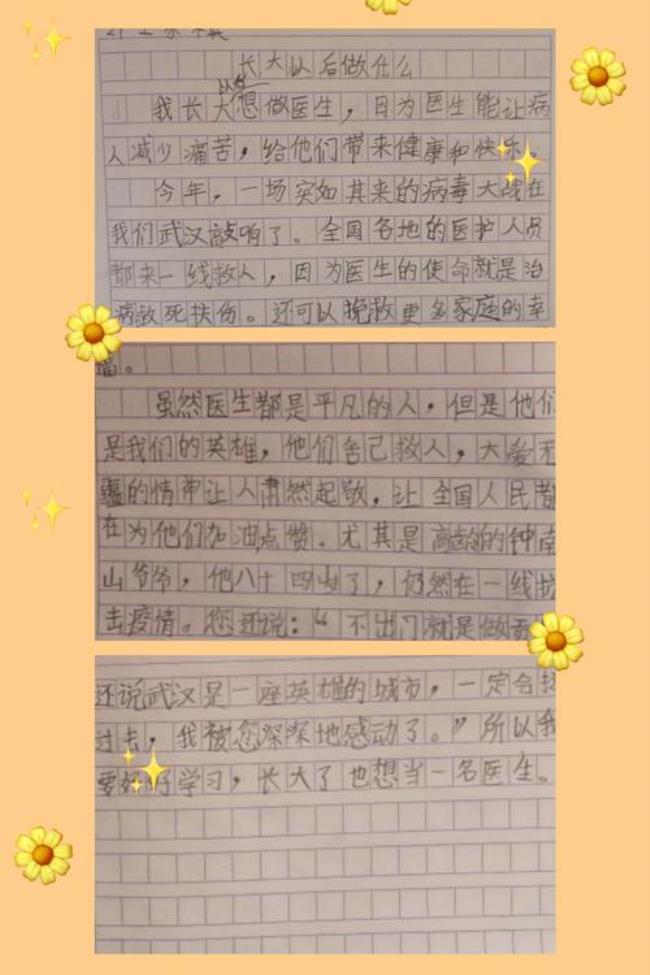 长大以后做什么
以后
我长大想做医生，因为医生能让病
人减少痛苦，给他们带来健康和快乐。
今年，一场突如其来的病毒大战在
我们武汉敲响了。全国各地的医护人员
都来一线救人，因为医生的使命就是治
病救死扶伤。还可以挽救更多家庭的幸
福。
虽然医生都是平凡的人，但是他们
是我们的英雄，他们舍己救人，大爱无
疆的情神让人肃然起敬，让全国人民都
在为他们加油点赞。尤其是高龄的钟南
山爷爷，他八十四岁了，仍然在一线抗
击疫情。您还说：“不出门就是做贡
还说武汉是一座英雄的城市，一定会
过去，我被您深深地感动了。”所以我
要好好学习，长大了也想当一名医生。